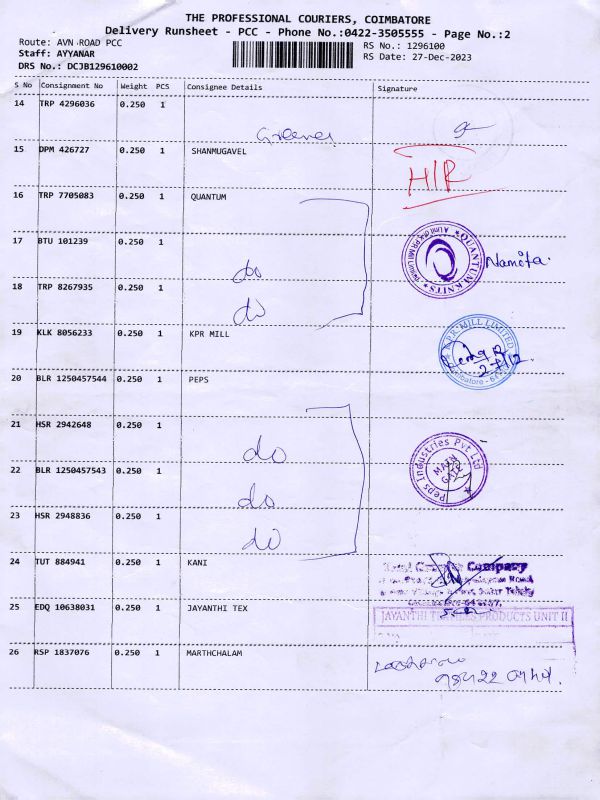 THE PROFESSIONAL COURIERS, COIMBATORE
Delivery Runsheet - PCC - Phone No.:0422-3505555 - Page No.:2
Route: AVN ROAD PCC
RS No.: 1296100
Staff: AYYANAR
RS Date: 27-Dec-2023
DRS No.: DCJB129610002
S No Consignment No Weight PCS Consignee Details Signature
14 TRP 4296036 0.250 1
15 DPM 426727 0.250 1 SHANMUGAVEL
H/R
16 TRP 7705083 0.250 1 QUANTUM
QUANTUM KNITS
17 BTU 101239 0.250 1
do
Namita.
18 TRP 8267935 0.250 1
do
19 KLK 8056233 0.250 1 KPR MILL
MILL LIMITED
20 BLR 1250457544 0.250 1 PEPS
21 HSR 2942648 0.250 1
do
Peps Industries Pvt Ltd
MAIN GATE
22 BLR 1250457543 0.250 1
do
23 HSR 2948836 0.250 1
do
24 TUT 884941 0.250 1 KANI
Company
Road,
25 EDQ 10638031 0.250 1 JAYANTHI TEX
JAYANTHI TEXTILES PRODUCTS UNIT II
26 RSP 1837076 0.250 1 MARTHCHALAM